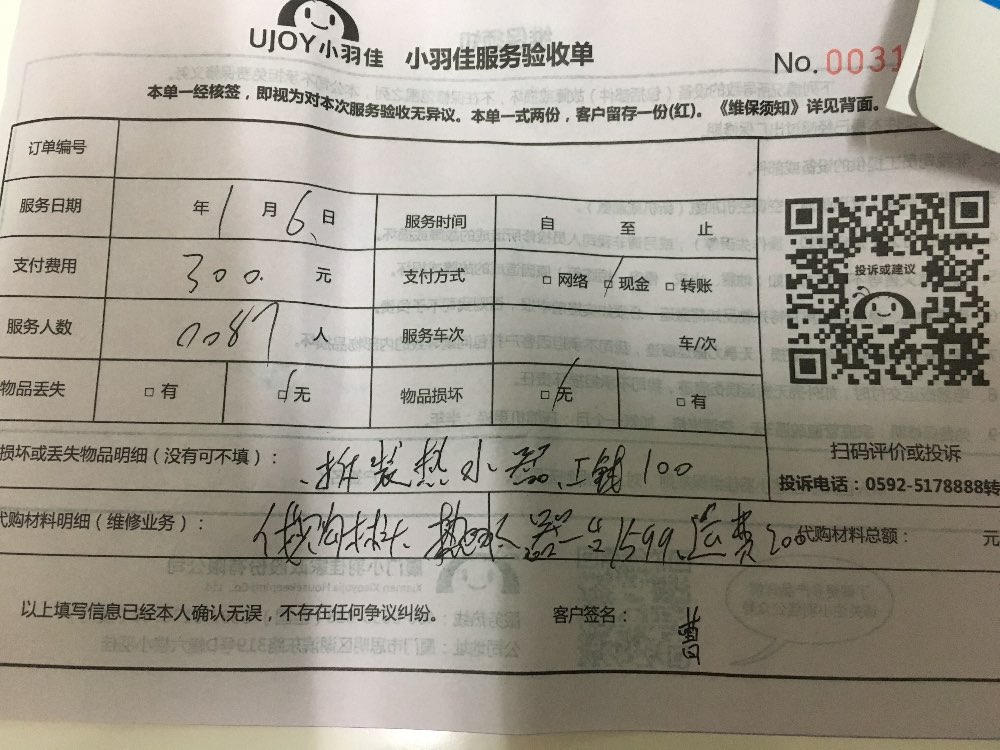 UJOY小羽佳 小羽佳服务验收单
No. 0031
本单一经核签，即视为对本次服务验收无异议。本单一式两份，客户留存一份(红)。《维保须知》详见背面。
订单编号
服务日期 年 1 月 6 日 服务时间 自 至 止
投诉或建议
支付费用 300 元 支付方式 □ 网络 □ 现金 □ 转账
服务人数 0087 人 服务车次 车/次
物品丢失 □ 有 □ 无 物品损坏 □ 无 □ 有
扫码评价或投诉
损坏或丢失物品明细（没有可不填）： 拆装热水器、工钱100
投诉电话：0592-5178888转
代购材料明细（维修业务）： 器一台1599、运费200 代购材料总额： 元
以上填写信息已经本人确认无误，不存在任何争议纠纷。 客户签名： 曹